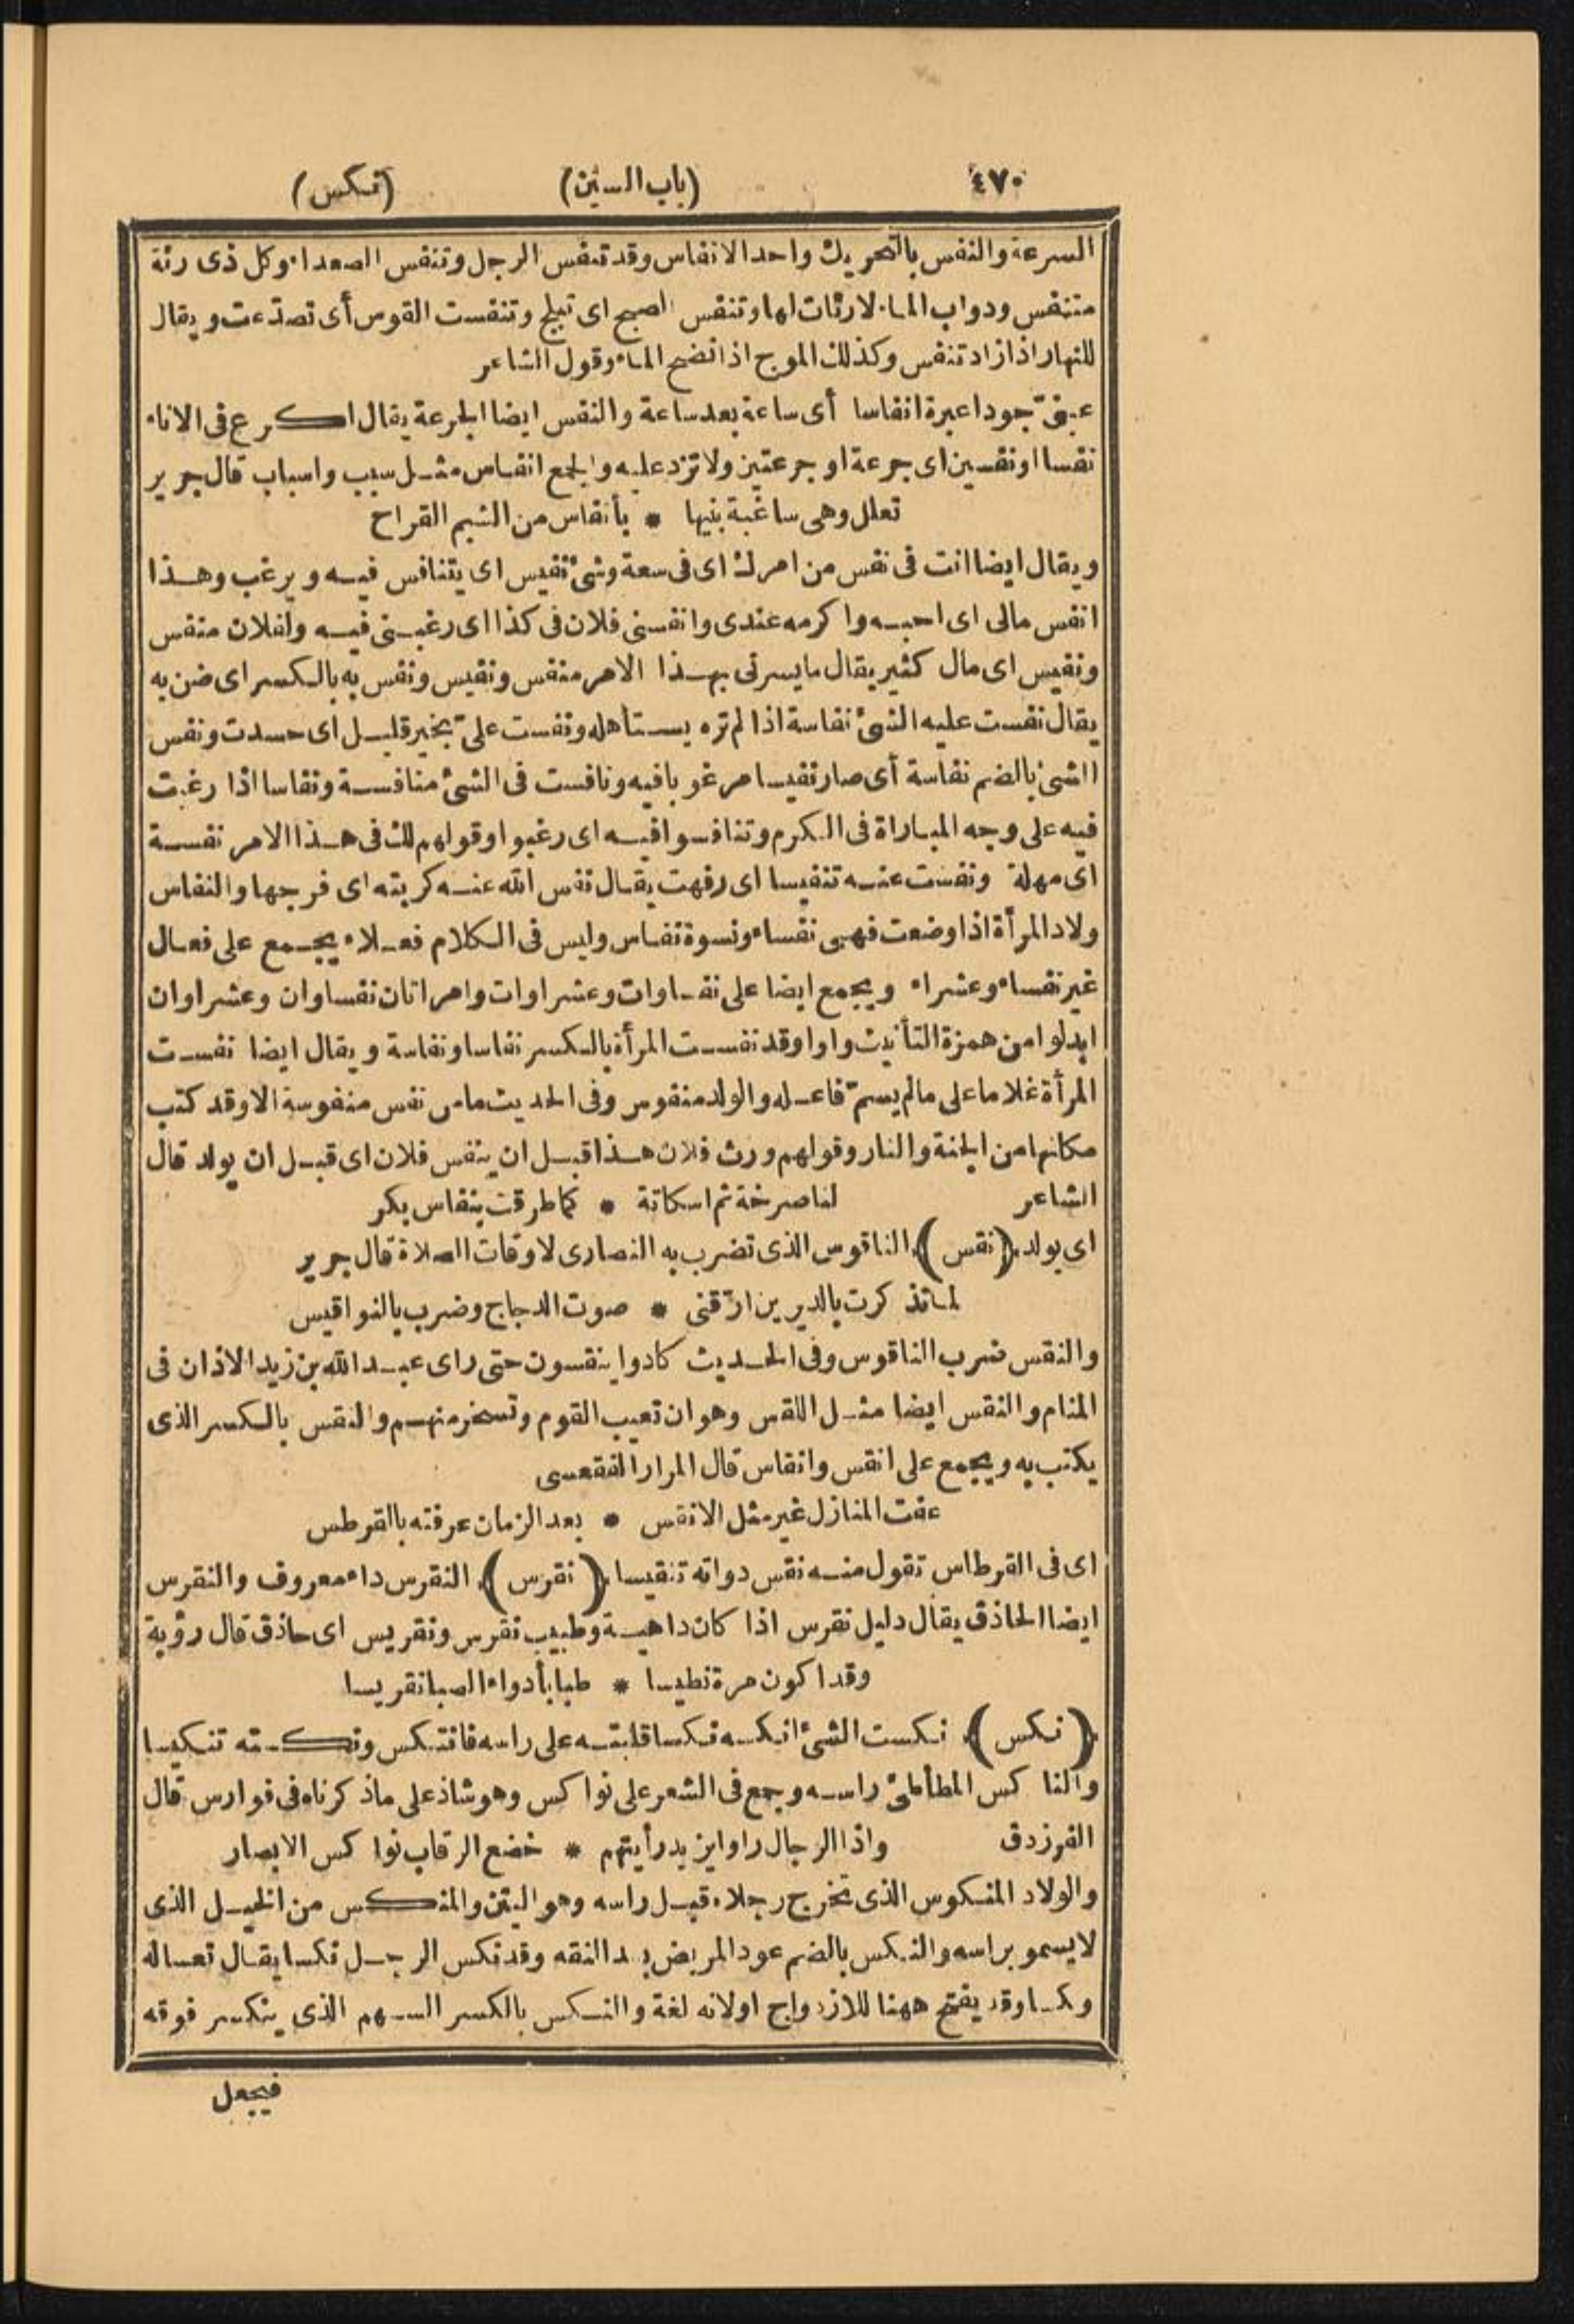 ٤٧٠ (باب السين) (نكس)
السرعة والنفس بالتحريك واحد الانفاس وقد تنفس الرجل وتنفس الصعداء وكل ذى رئة
متنفس ودواب الماء لارئات لها وتنفس الصبح اى تبلج وتنفست القوس أى تصدّعت ويقال
للنهار اذا زاد تنفس وكذلك الموج اذا نضح الماء وقول الشاعر
عينىّ جودا عبرة انفاسا أى ساعة بعد ساعة والنفس ايضا الجرعة يقال اكرع فى الاناء
نفسا او نفسين اى جرعة او جرعتين ولا تزد عليه والجمع انفاس مثل سبب واسباب قال جرير
تعلل وهى ساغبة بنيها * بأنفاس من الشبم القراح
ويقال ايضا انت فى نفس من امرك اى فى سعة وشئ نفيس اى يتنافس فيه ويرغب وهذا
انفس مالى اى احبه واكرمه عندى وانفسنى فلان فى كذا اى رغبنى فيه ولفلان منفس
ونفيس اى مال كثير يقال مايسرنى بهذا الامر منفس ونفيس ونفس به بالكسر اى ضن به
يقال نفست عليه الشئ نفاسة اذا لم تره يستأهله ونفست علىّ بخير قليل اى حسدت ونفس
الشئ بالضم نفاسة أى صار نفيسا مرغوبا فيه ونافست فى الشئ منافسة ونفاسا اذا رغبت
فيه على وجه المباراة فى الكرم وتنافسوا فيه اى رغبوا وقولهم لك فى هذا الامر نفسة
اى مهلة ونفست عنه تنفيسا اى رفهت يقال نفس الله عنه كربته اى فرجها والنفاس
ولاد المرأة اذا وضعت فهى نفساء ونسوة نفاس وليس فى الكلام فعلاء يجمع على فعال
غير نفساء وعشراء ويجمع ايضا على نفساوات وعشراوات وامراتان نفساوان وعشراوان
ابدلوا من همزة التأنيث واوا وقد نفست المرأة بالكسر نفاسا ونفاسة ويقال ايضا نفست
المرأة غلاما على مالم يسمّ فاعله والولد منفوس وفى الحديث مامن نفس منفوسة الا وقد كتب
مكانها من الجنة والنار وقولهم ورث فلان هذا قبل ان ينفس فلان اى قبل ان يولد قال
الشاعر لنا صرخة ثم اسكاتة * كما طرقت بنفاس بكر
اى بولد (نقس) الناقوس الذى تضرب به النصارى لاوقات الصلاة قال جرير
لما تذكرت بالديرين ارّقنى * صوت الدجاج وضرب بالنواقيس
والنقس ضرب الناقوس وفى الحديث كادوا ينقسون حتى راى عبد الله بن زيد الاذان فى
المنام والنقس ايضا مثل اللقس وهو ان تعيب القوم وتسخر منهم والنقس بالكسر الذى
يكتب به ويجمع على انقس وانقاس قال المرار الفقعسى
عفت المنازل غير مثل الانقس * بعد الزمان عرفته بالقرطس
اى فى القرطاس تقول منه نقس دواته تنقيسا (نقرس) النقرس داء معروف والنقرس
ايضا الحاذق يقال دليل نقرس اذا كان داهية وطبيب نقرس ونقريس اى حاذق قال رؤبة
وقد اكون مرة نطيسا * طبا بأدواء الصبا نقريسا
(نكس) نكست الشئ انكسه نكسا قلبته على راسه فانتكس ونكسته تنكيسا
والناكس المطأطئ راسه وجمع فى الشعر على نواكس وهو شاذ على ماذكرناه فى فوارس قال
الفرزدق واذا الرجال راوا يزيد رأيتهم * خضع الرقاب نواكس الابصار
والولاد المنكوس الذى تخرج رجلاه قبل راسه وهو اليتن والمنكس من الخيل الذى
لايسمو براسه والنكس بالضم عود المريض بعد النقه وقد نكس الرجل نكسا يقال تعسا له
ونكسا وقد يفتح ههنا للازدواج اولانه لغة والنكس بالكسر السهم الذى ينكسر فوقه
فيجعل